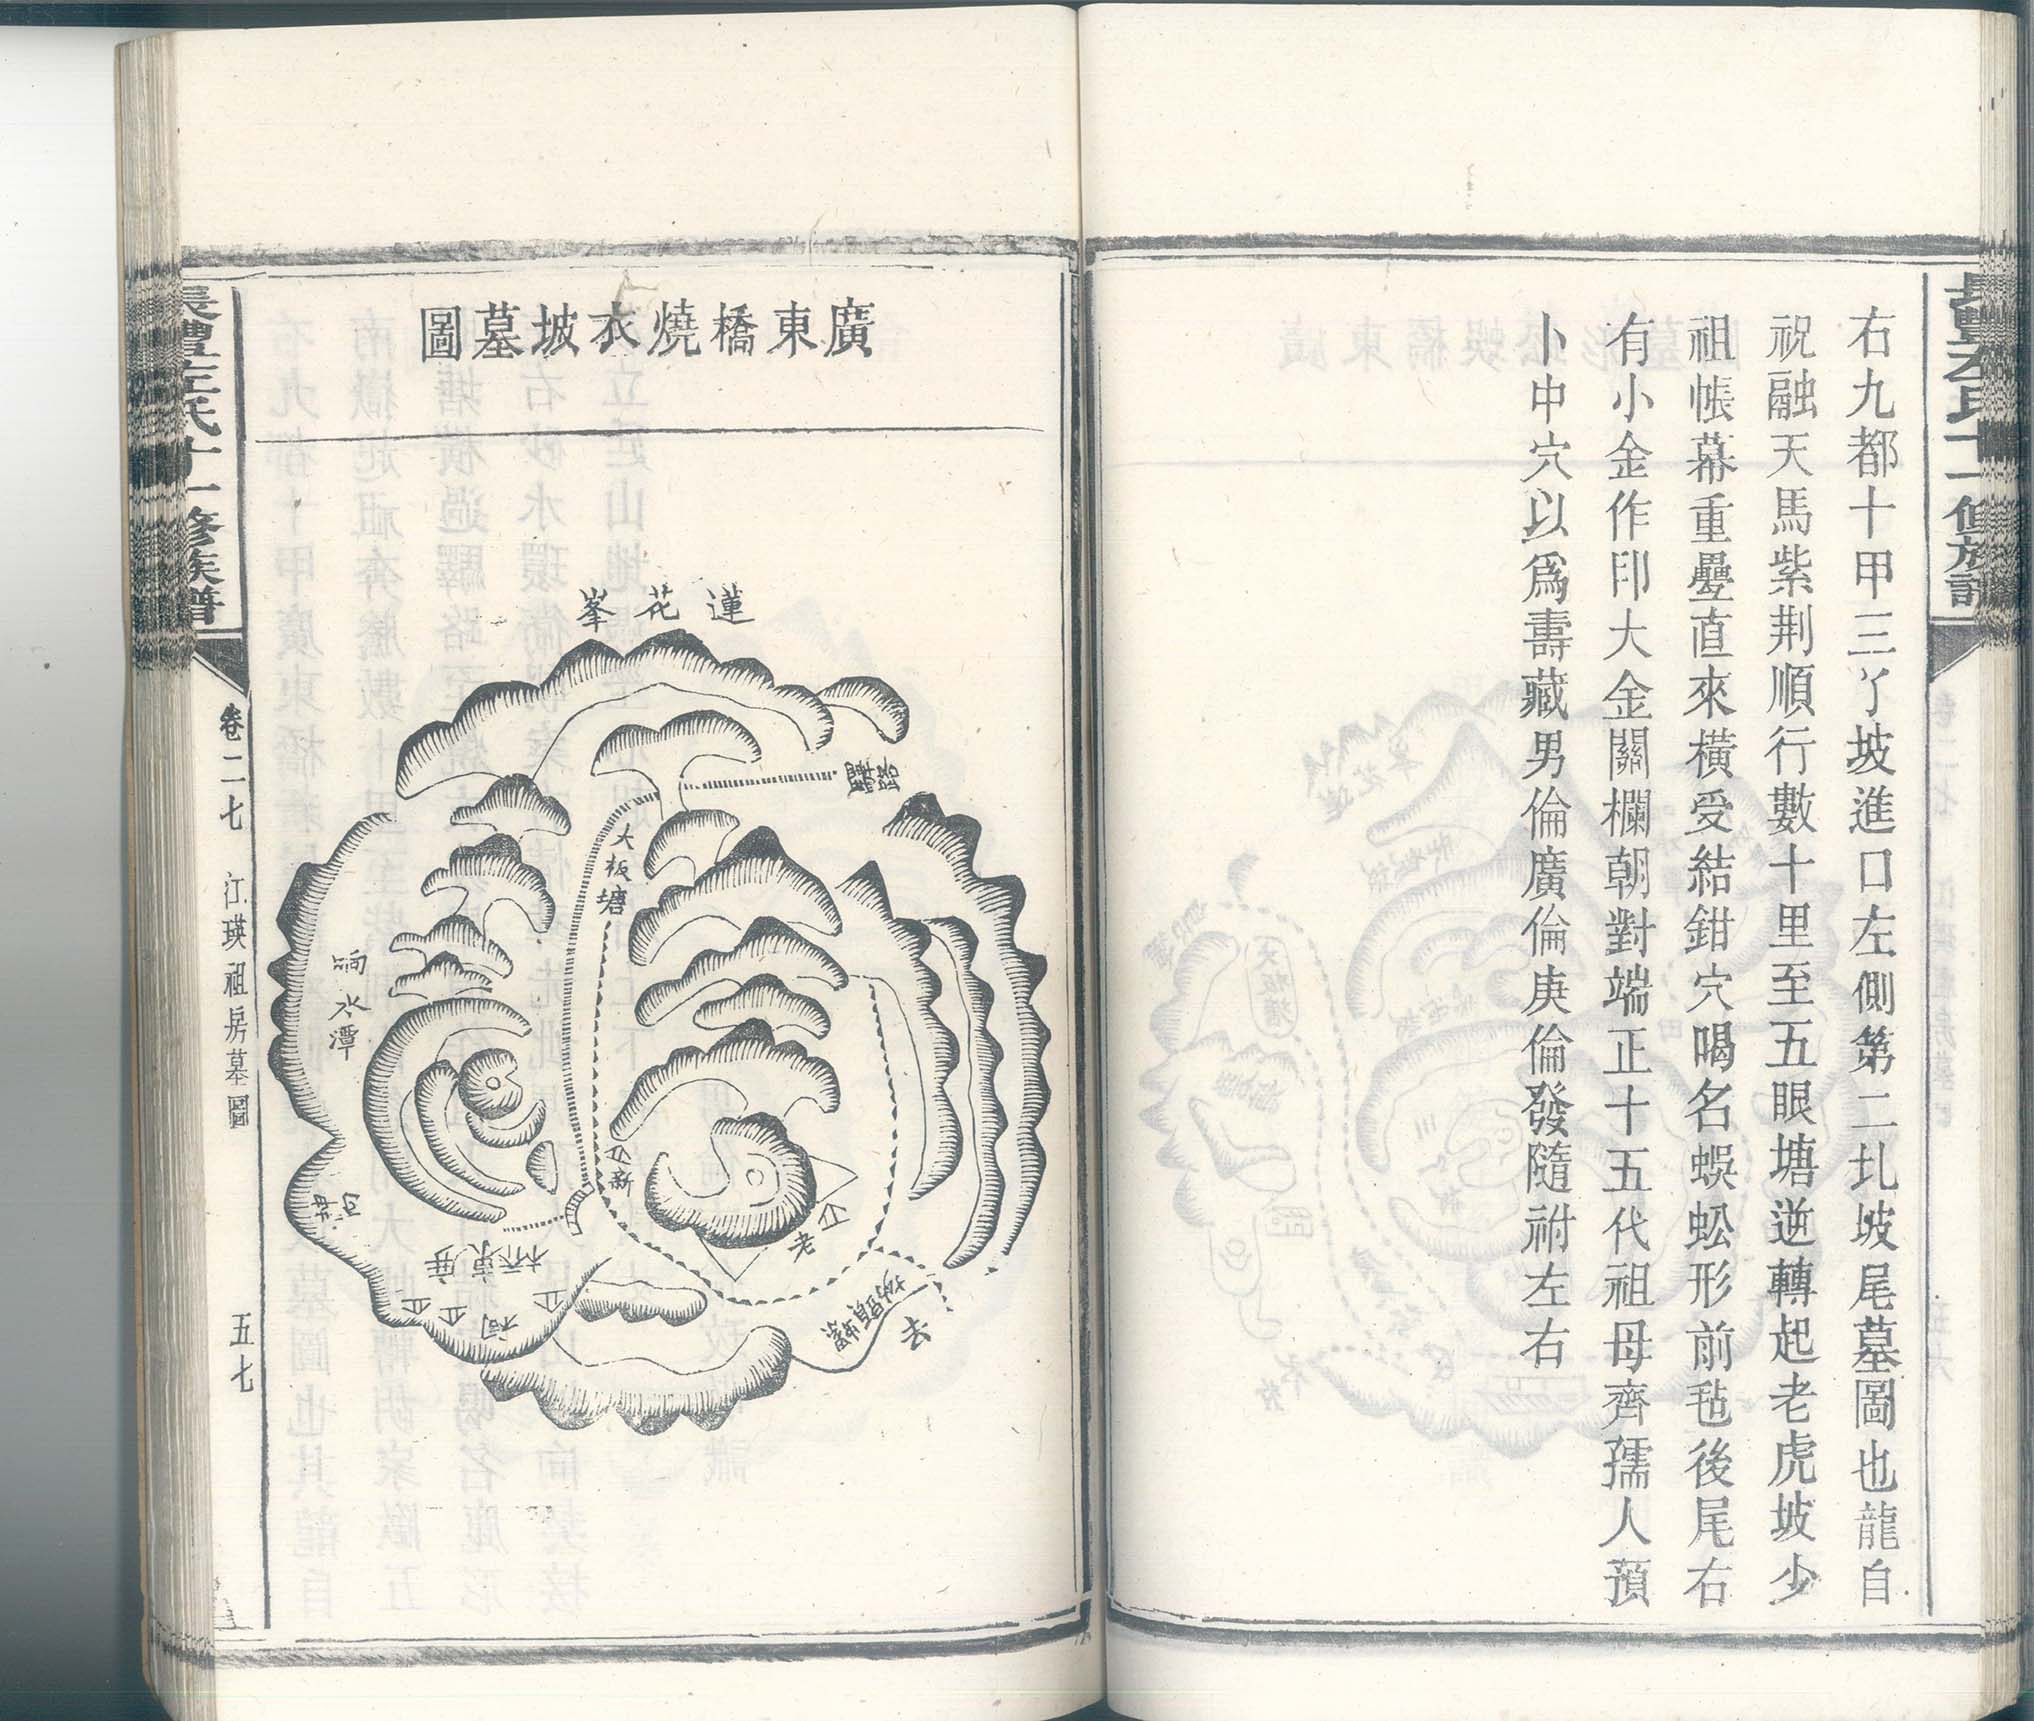 右九都十甲三丫坡進口左側第二圠坡尾墓圖也龍自
祝融天馬紫荆順行數十里至五眼塘逆轉起老虎坡少
祖帳幕重疊直來橫受結鉗穴喝名蜈蚣形前毡後尾右
有小金作印大金關欄朝對端正十五代祖母齊孺人預
卜中穴以爲壽藏男倫廣倫庚倫發隨祔左右
廣東橋燒衣坡墓圖
蓮花峯
驛路
大板塘
响水潭
新
老
去
祠
左氏十一修族譜
卷二七
江瑛祖房墓圖
五七